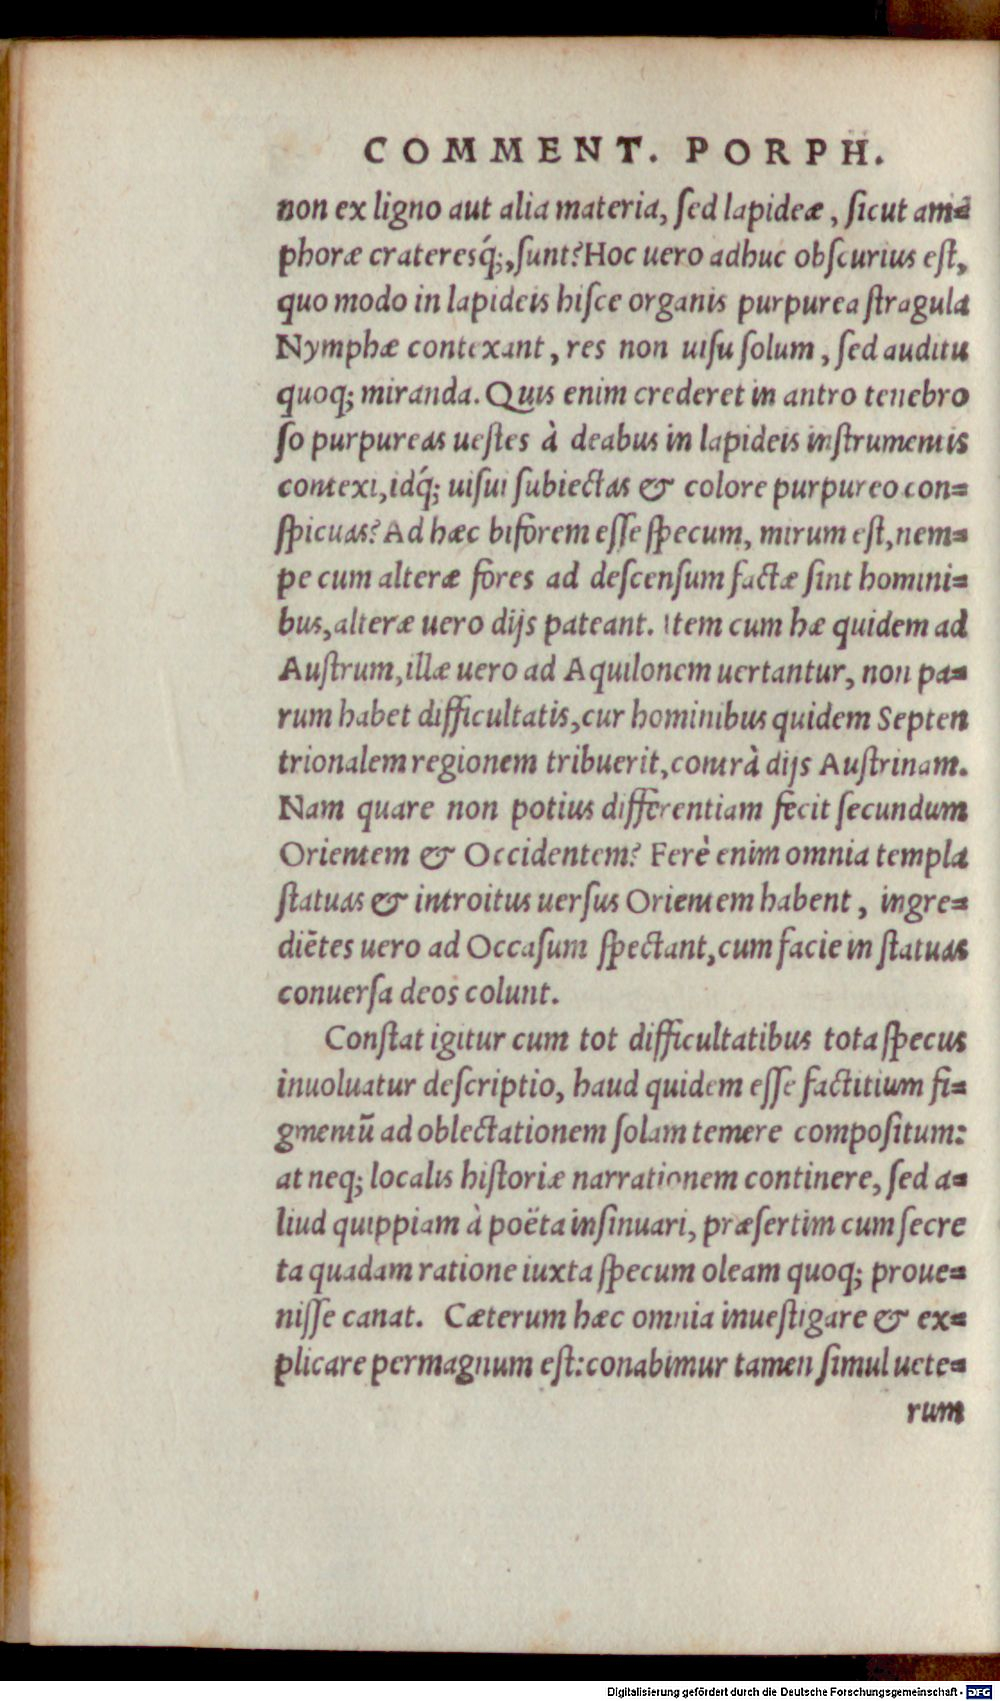 COMMENT. PORPH.
non ex ligno aut alia materia, ſed lapideæ, ſicut am=
phoræ crateresq́;, ſunt? Hoc uero adhuc obſcurius eſt,
quo modo in lapideis hiſce organis purpurea ſtragula
Nymphæ contexant, res non uiſu ſolum, ſed auditu
quoq; miranda. Quis enim crederet in antro tenebro
ſo purpureas ueſtes à deabus in lapideis inſtrumentis
contexi, idq́; uiſui ſubiectas & colore purpureo con=
ſpicuas? Ad hæc biforem eſſe ſpecum, mirum eſt, nem=
pe cum alteræ fores ad deſcenſum factæ ſint homini=
bus, alteræ uero dijs pateant. Item cum hæ quidem ad
Auſtrum, illæ uero ad Aquilonem uertantur, non pa=
rum habet difficultatis, cur hominibus quidem Septen
trionalem regionem tribuerit, contrà dijs Auſtrinam.
Nam quare non potius differentiam fecit ſecundum
Orientem & Occidentem? Ferè enim omnia templa
ſtatuas & introitus uerſus Orientem habent, ingre=
diẽtes uero ad Occaſum ſpectant, cum facie in ſtatuas
conuerſa deos colunt.
Conſtat igitur cum tot difficultatibus tota ſpecus
inuoluatur deſcriptio, haud quidem eſſe factitium fi=
gmentũ ad oblectationem ſolam temere compoſitum:
at neq; localis hiſtoriæ narrationem continere, ſed a=
liud quippiam à poëta inſinuari, præſertim cum ſecre
ta quadam ratione iuxta ſpecum oleam quoq; proue=
niſſe canat. Cæterum hæc omnia inueſtigare & ex=
plicare permagnum eſt: conabimur tamen ſimul uete=
rum
Digitalisierung gefördert durch die Deutsche Forschungsgemeinschaft - DFG